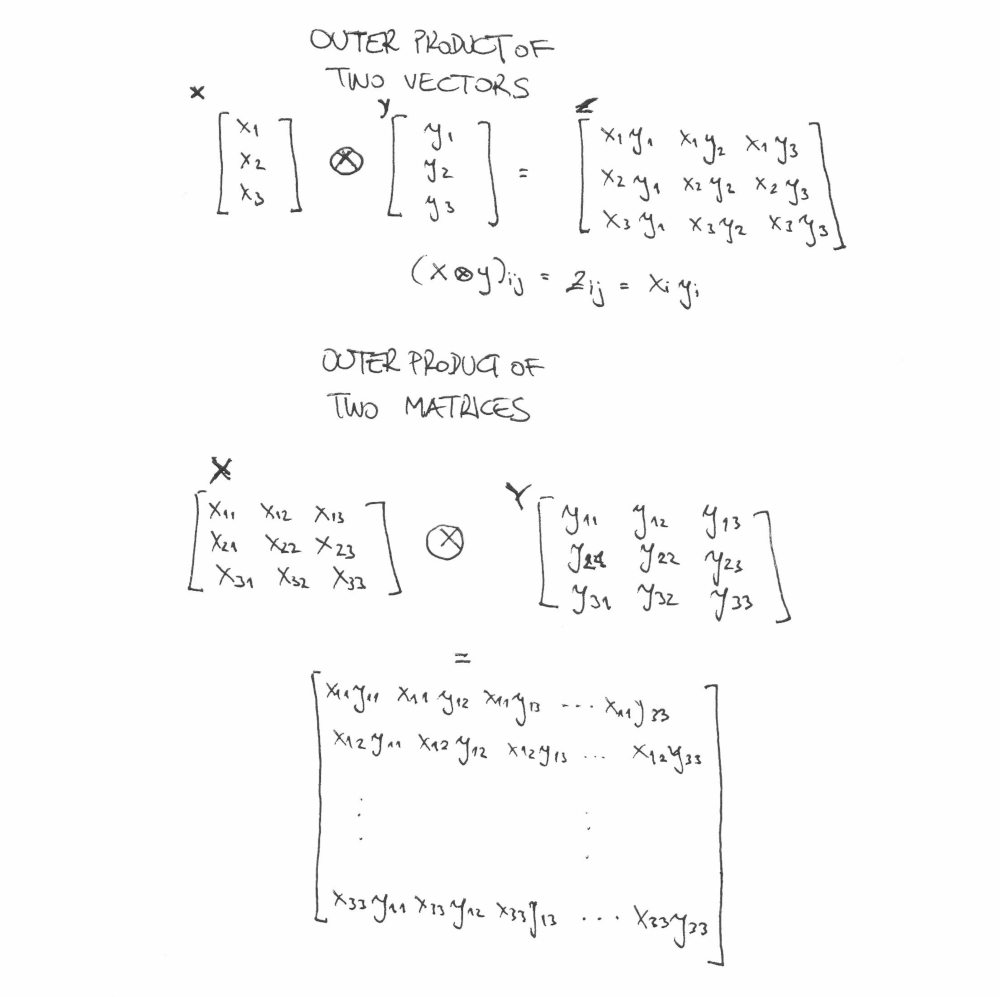 OUTER PRODUCT OF
TWO VECTORS
x y z
[x1 x2 x3] ⊗ [y1 y2 y3] = [x1y1 x1y2 x1y3
x2y1 x2y2 x2y3
x3y1 x3y2 x3y3]
(x⊗y)ij = zij = xi yj
OUTER PRODUCT OF
TWO MATRICES
X Y
[x11 x12 x13 ⊗ [y11 y12 y13
x21 x22 x23 y21 y22 y23
x31 x32 x33] y31 y32 y33]
=
[x11y11 x11y12 x11y13 ... x11y33
x12y11 x12y12 x12y13 ... x12y33
⋮ ⋮
x33y11 x33y12 x33y13 ... x33y33]